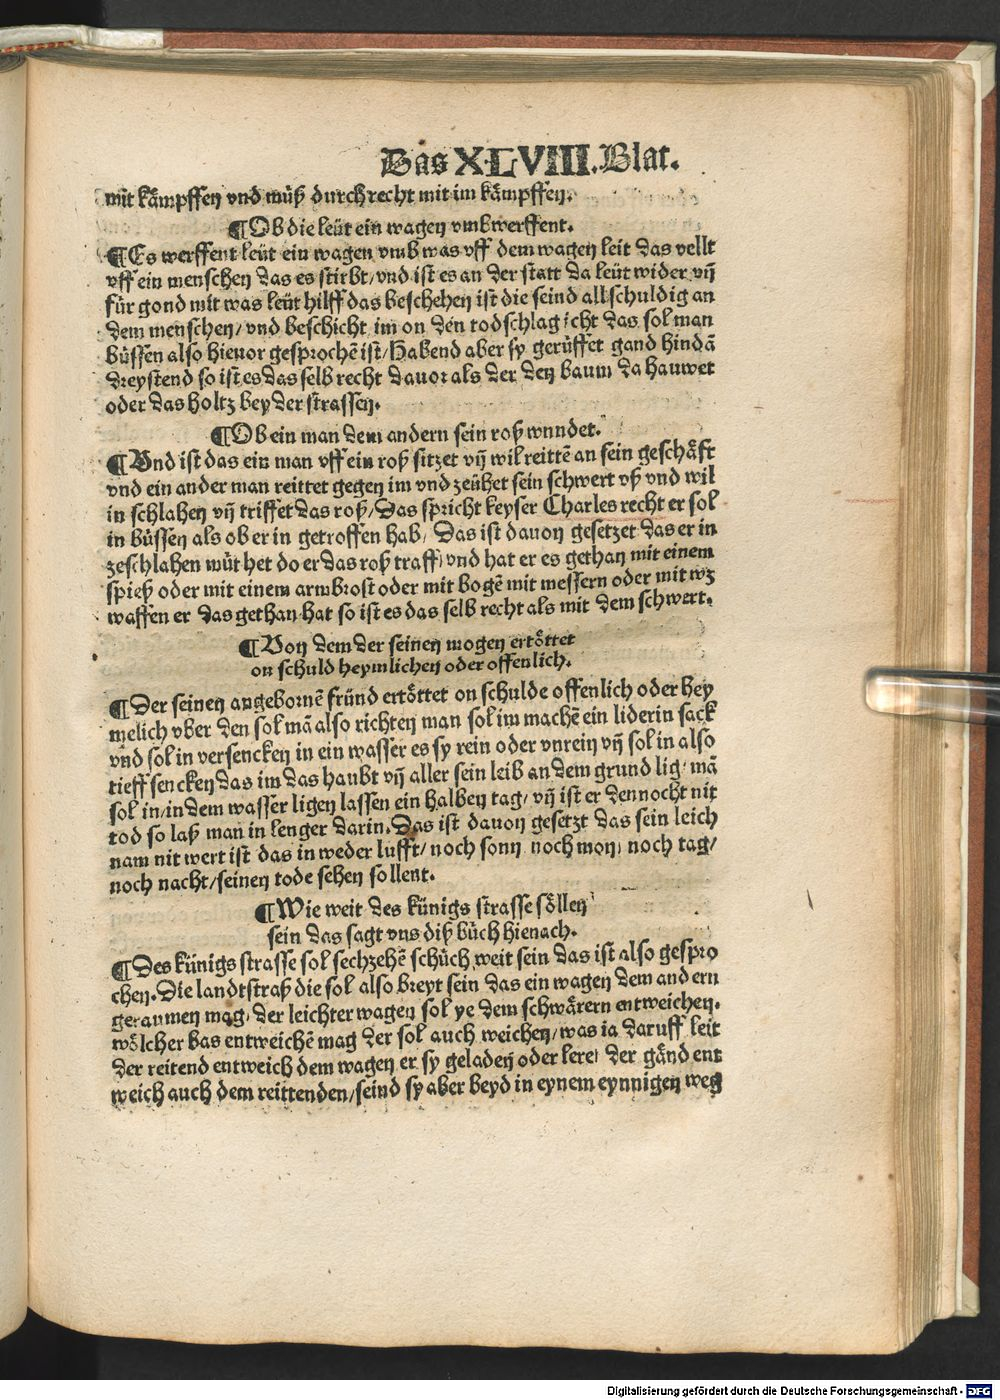 Das XLVIII. Blat.
mit kämpffen vnd müß durch recht mit im kämpffen.
¶Ob die leüt ein wagen vmbwerffent.
¶Es werffent leüt ein wagen vmb was vff dem wagen leit das vellt
vff ein menschen das es stirbt/vnd ist es an der statt da leüt wider vñ
für gond mit was leüt hilff das beschehen ist die seind all schuldig an
dem menschen/ vnd beschicht im on den todschlag icht das sol man
büssen also hieuor gesprochē ist/Habend aber sy gerüffet gand hindā
dreystend so ist es das selb recht dauor als der den baum da hauwet
oder das holtz bey der strassen.
¶Ob ein man dem andern sein roß wundet.
¶Vnd ist das ein man vff ein roß sitzet vñ wil reittē an sein geschäft
vnd ein ander man reittet gegen im vnd zeühet sein schwert vß vnd wil
in schlahen vñ triffet das roß/Das spricht keyser Charles recht er sol
in büssen als ob er in getroffen hab/ Das ist dauon gesetzet das er in
zeschlahen müt het do er das roß traff/ vnd hat er es gethan mit einem
spieß oder mit einem armbrost oder mit bogē mit messern oder mit wz
waffen er das gethan hat so ist es das selb recht als mit dem schwert.
¶Von dem der seinen mogen ertöttet
on schuld heymlichen oder offenlich.
¶Der seinen angebornē fründ ertöttet on schulde offenlich oder hey
melich vber den sol mā also richten man sol im machē ein liderin sack
vnd sol in versencken in ein wasser es sy rein oder vnrein vñ sol in also
tieff sencken das im das haubt vñ aller sein leib an dem grund lig/ mā
sol in/in dem wasser ligen lassen ein halben tag/ vñ ist er dennocht nit
tod so laß man in lenger darin. Das ist dauon gesetzt das sein leich
nam nit wert ist das in weder lufft/ noch sonn noch mon/ noch tag/
noch nacht/seinen tode sehen sollent.
¶Wie weit des künigs strasse söllen
sein das sagt vns diß büch hienach.
¶Des künigs strasse sol sechzehē schüch weit sein das ist also gespro
chen. Die landtstraß die sol also breyt sein das ein wagen dem andern
geraumen mag/ der leichter wagen sol ye dem schwärern entweichen.
wölcher bas entweichē mag der sol auch weichen/ was ia daruff leit
der reitend entweich dem wagen er sy geladen oder lere/ der gänd ent
weich auch dem reittenden/seind sy aber beyd in eynem eynnigen weg
Digitalisierung gefördert durch die Deutsche Forschungsgemeinschaft - DFG